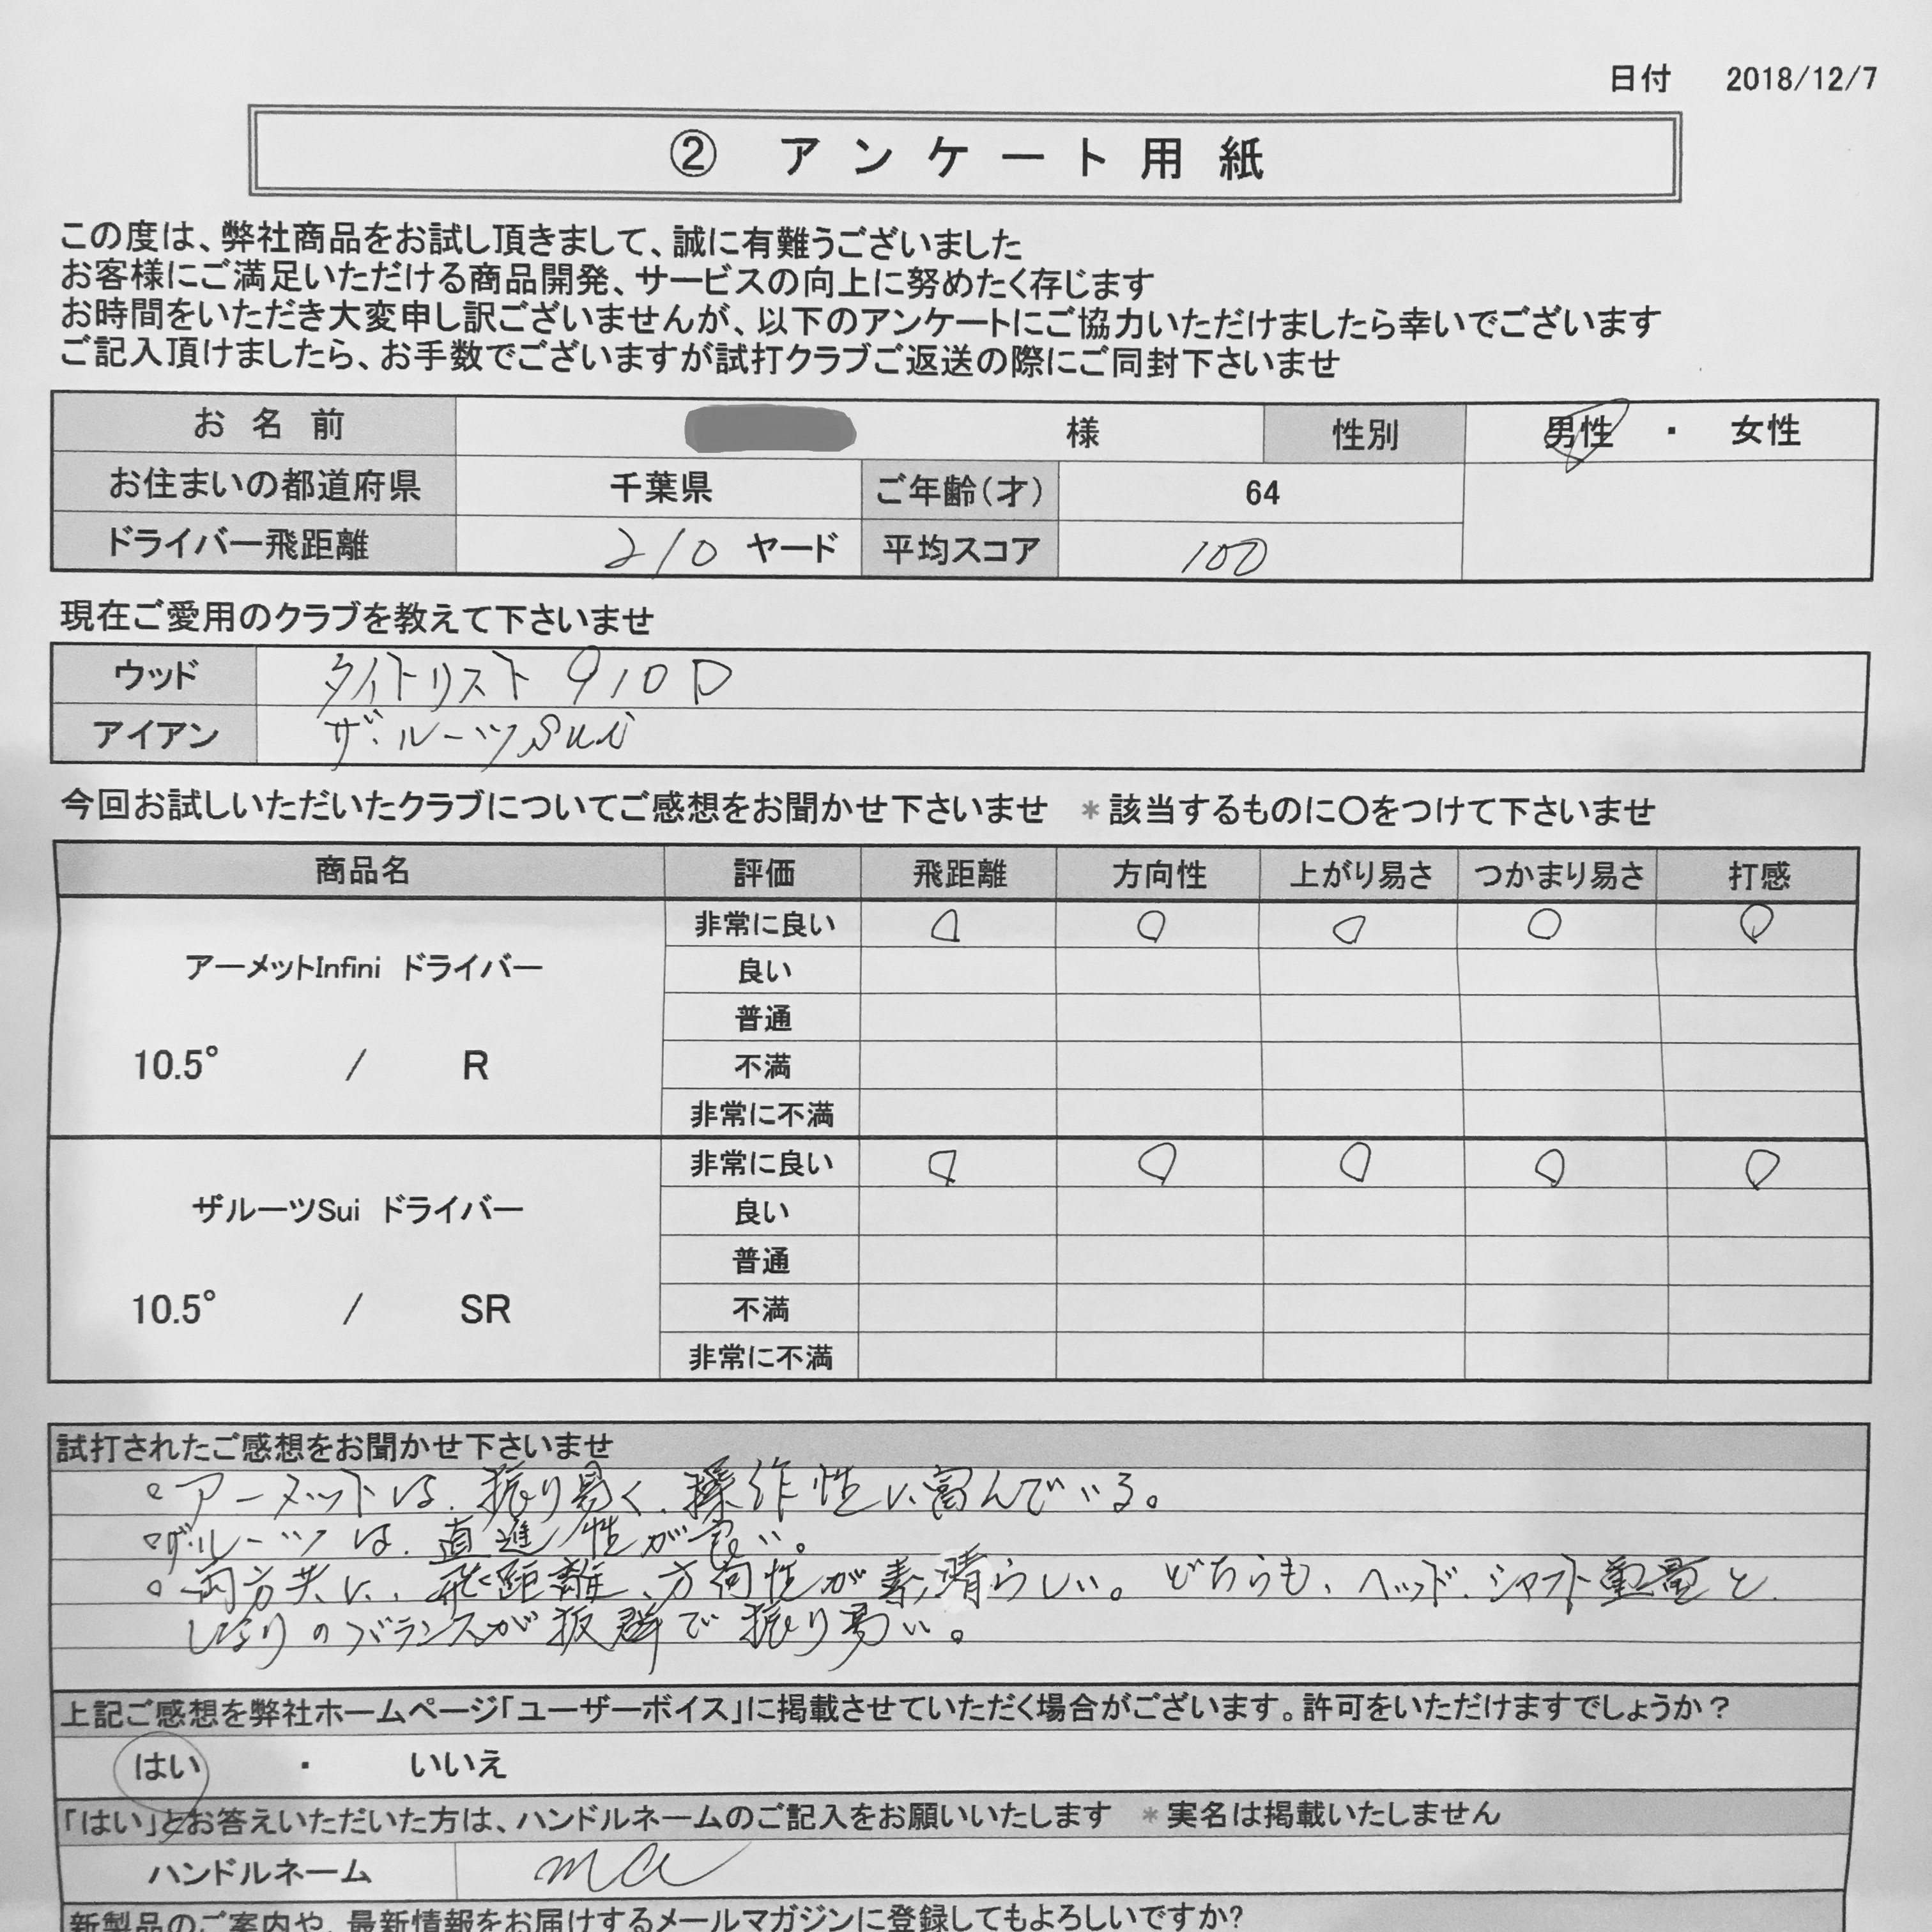 日付 2018/12/7
② アンケート用紙
この度は、弊社商品をお試し頂きまして、誠に有難うございました
お客様にご満足いただける商品開発、サービスの向上に努めたく存じます
お時間をいただき大変申し訳ございませんが、以下のアンケートにご協力いただけましたら幸いでございます
ご記入頂けましたら、お手数でございますが試打クラブご返送の際にご同封下さいませ
お名前 様 性別 男性 ・ 女性
お住まいの都道府県 千葉県 ご年齢(才) 64
ドライバー飛距離 210 ヤード 平均スコア 100
現在ご愛用のクラブを教えて下さいませ
ウッド タイトリスト 910D
アイアン ザ・ルーツSui
今回お試しいただいたクラブについてご感想をお聞かせ下さいませ *該当するものに〇をつけて下さいませ
商品名 評価 飛距離 方向性 上がり易さ つかまり易さ 打感
アーメットInfini ドライバー
10.5° / R
非常に良い 〇 〇 〇 〇 〇
良い
普通
不満
非常に不満
ザルーツSui ドライバー
10.5° / SR
非常に良い 〇 〇 〇 〇 〇
良い
普通
不満
非常に不満
試打されたご感想をお聞かせ下さいませ
。アーメットは、振り易く、操作性に富んでいる。
。ザ・ルーツは、直進性が良い。
。両方共に、飛距離、方向性が素晴らしい。どちらも、ヘッド、シャフト重量と、
しなりのバランスが抜群で振り易い。
上記ご感想を弊社ホームページ「ユーザーボイス」に掲載させていただく場合がございます。許可をいただけますでしょうか？
はい ・ いいえ
「はい」とお答えいただいた方は、ハンドルネームのご記入をお願いいたします *実名は掲載いたしません
ハンドルネーム ma
新製品のご案内や、最新情報をお届けするメールマガジンに登録してもよろしいですか?